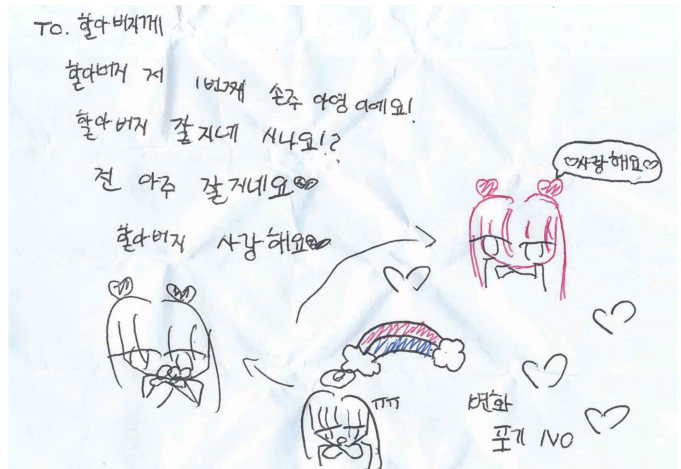 TO. 할아버지께
할아버지 저 1번째 손주 아영이에요!
할아버지 잘지네 시나요!?
전 아주 잘지네요
할아버지 사랑해요
♡사랑해요♡
ㅠㅠ
변화
포기 NO